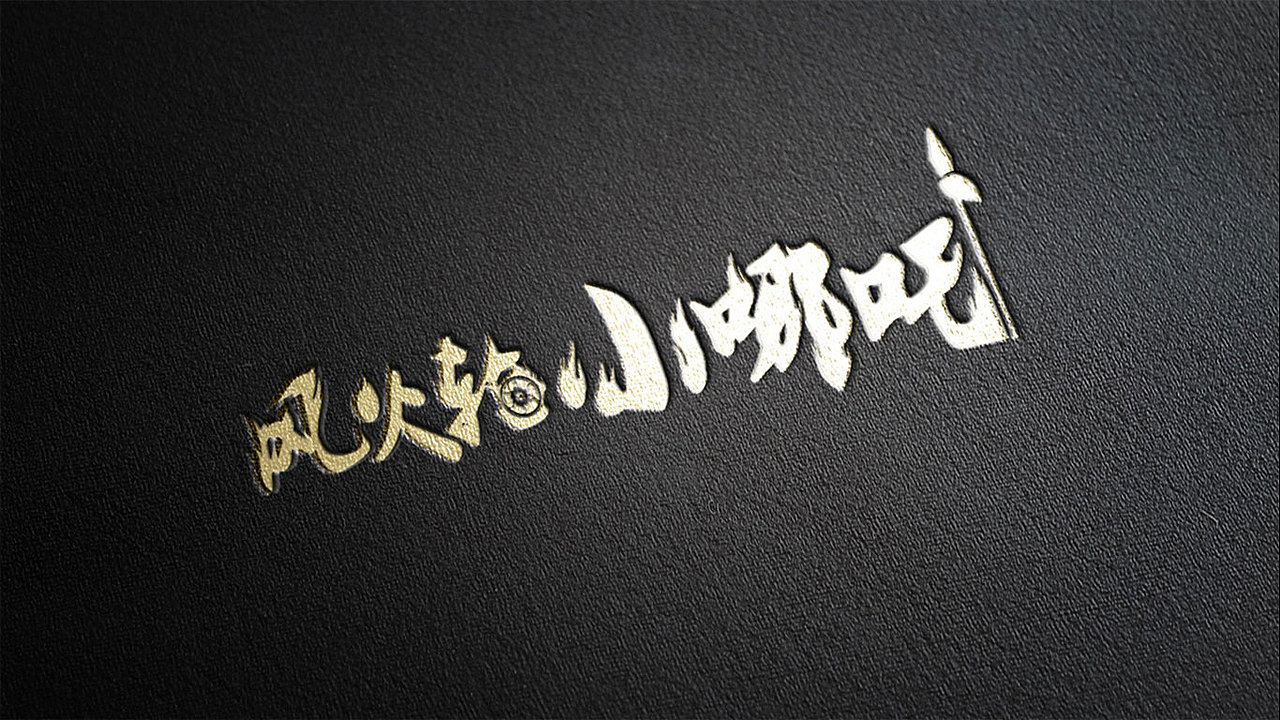 风火轮小哪吒